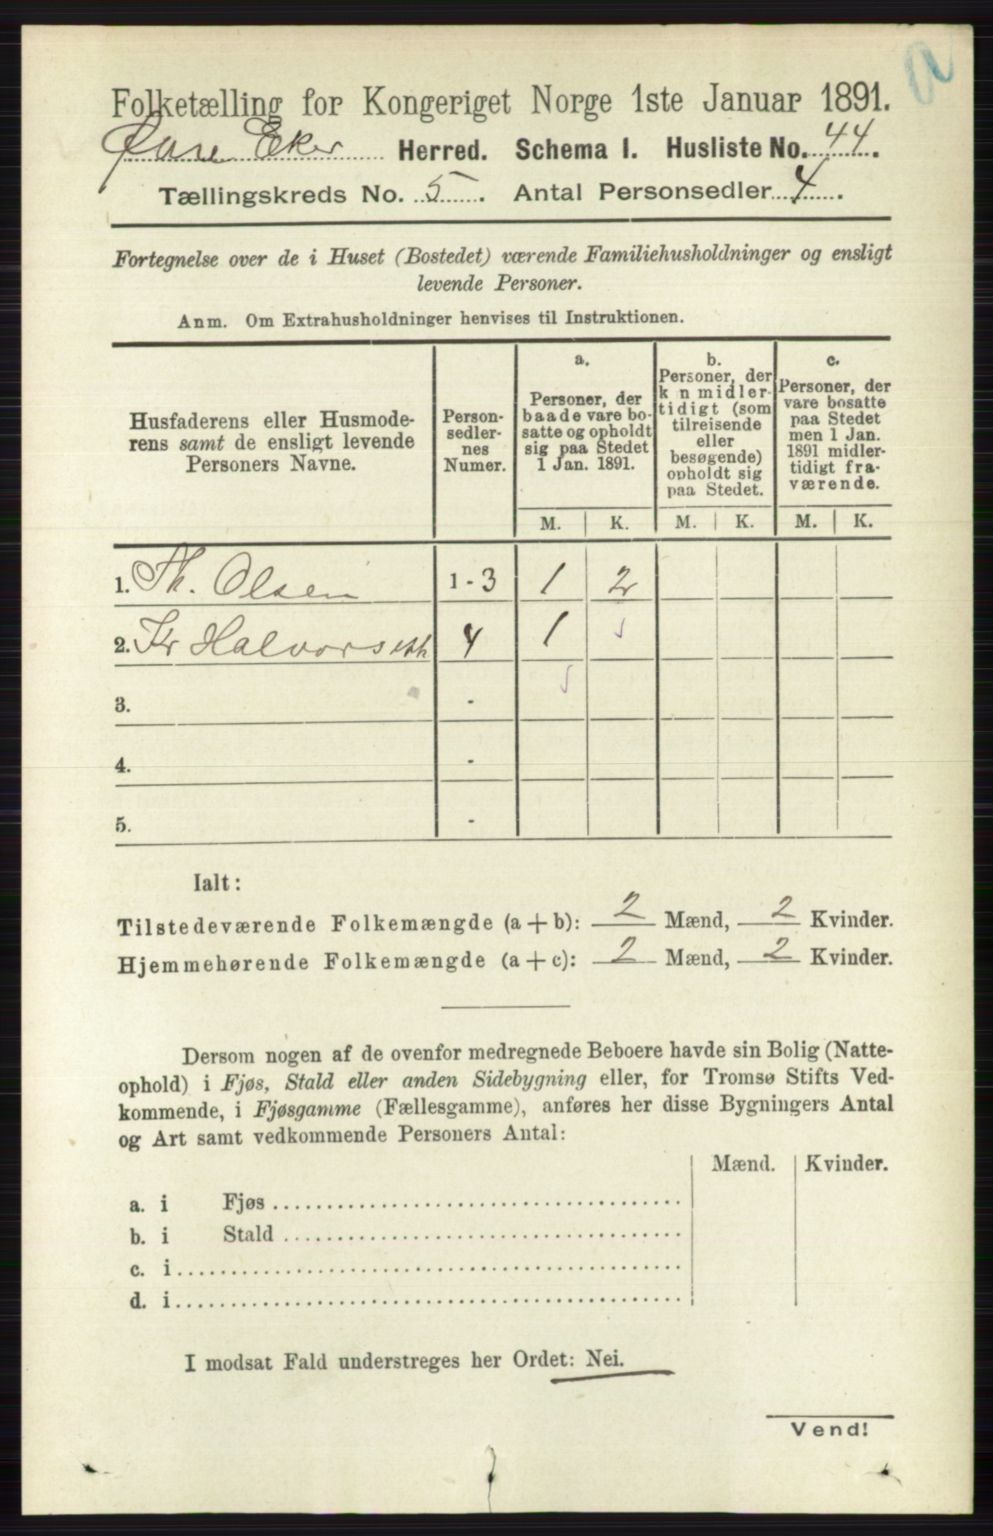 Folketælling for Kongeriget Norge 1ste Januar 1891.
Øvre Eker Herred. Schema I. Husliste No. 44.
Tællingskreds No. 5. Antal Personsedler 4.
Fortegnelse over de i Huset (Bostedet) værende Familiehusholdninger og ensligt
levende Personer.
Anm. Om Extrahusholdninger henvises til Instruktionen.
Husfaderens eller Husmode-
rens samt de ensligt levende
Personers Navne.
Person-
sedler-
nes
Numer.
a.
Personer, der
baade vare bo-
satte og opholdt
sig paa Stedet
1 Jan. 1891.
b.
Personer, der
k n midler-
tidigt (som
tilreisende
eller
besøgende)
opholdt sig
paa Stedet.
c.
Personer, der
vare bosatte
paa Stedet
men 1 Jan.
1891 midler-
tidigt fra-
værende.
M. K. M. K. M. K.
1. Th. Olsen 1-3 1 2
2. Kr Halvors 4 1
3. -
4. -
5. -
Ialt:
Tilstedeværende Folkemængde (a+b): 2 Mænd, 2 Kvinder.
Hjemmehørende Folkemængde (a+c): 2 Mænd, 2 Kvinder.
Dersom nogen af de ovenfor medregnede Beboere havde sin Bolig (Natte-
ophold) i Fjøs, Stald eller anden Sidebygning eller, for Tromsø Stifts Ved-
kommende, i Fjøsgamme (Fællesgamme), anføres her disse Bygningers Antal
og Art samt vedkommende Personers Antal:
Mænd. Kvinder.
a. i Fjøs
b. i Stald
c. i
d. i
I modsat Fald understreges her Ordet: Nei.
Vend!